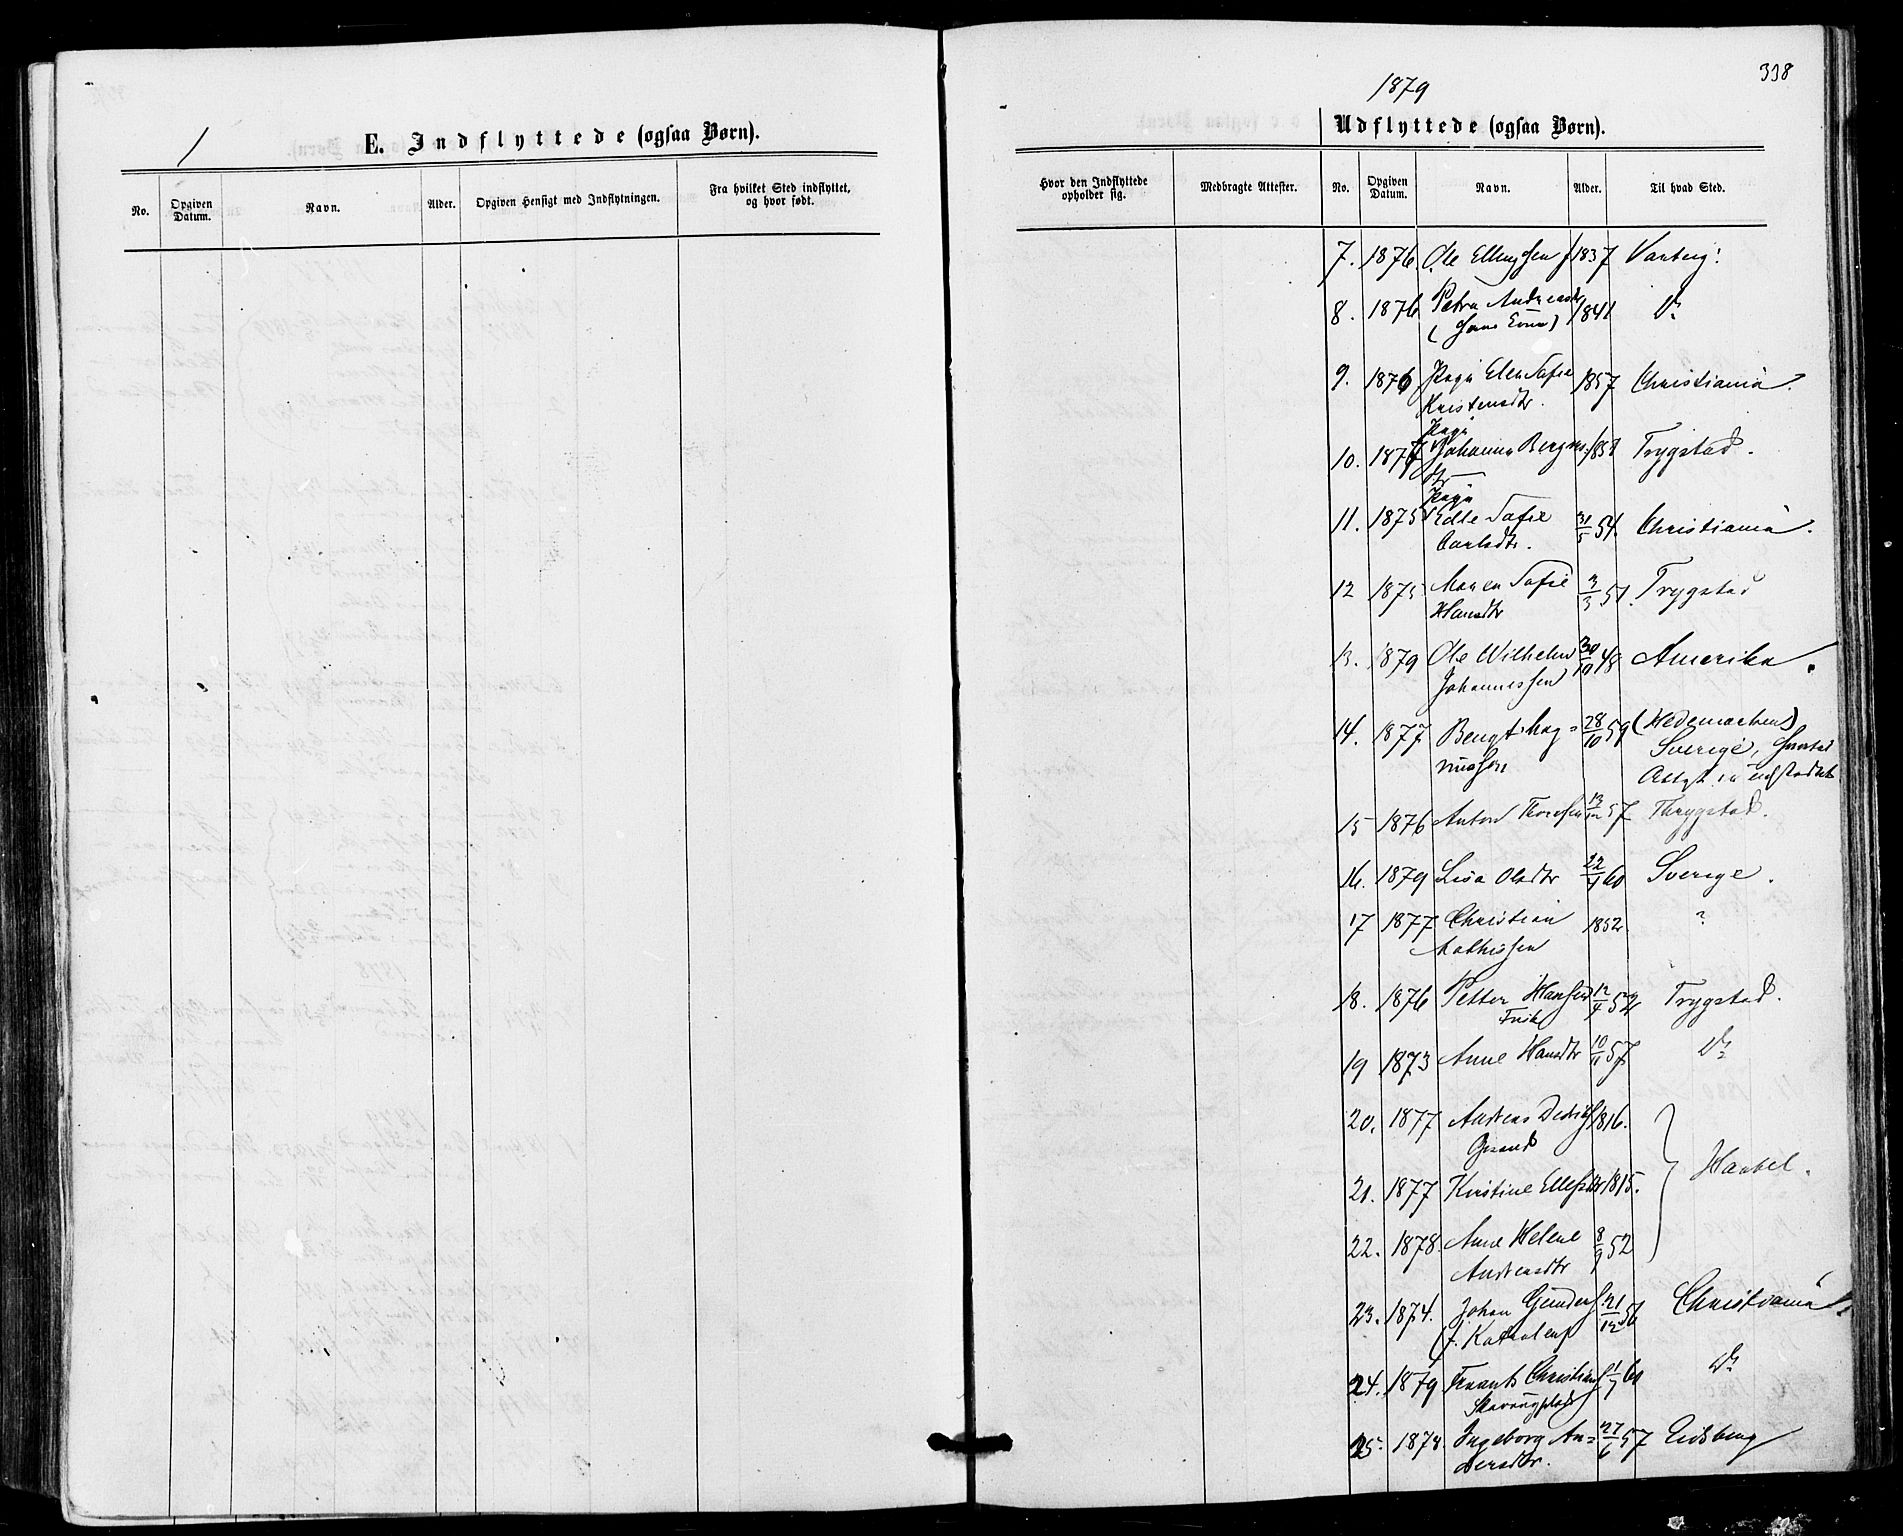 338
1879
E. Indflyttede (ogsaa Børn).
Udflyttede (ogsaa Børn).
No. Opgiven Datum. Navn. Alder. Opgiven Hensigt med Indflytningen. Fra hvilket Sted indflyttet, og hvor født.
Hvor den Indflyttede opholder sig. Medbragte Attester. No. Opgiven Datum. Navn. Alder. Til hvad Sted.
7. 1876. Ole Ellingsen 1837
8. 1876 Petra Andreasdtr 1841 do
9. 1876 Pige Elen Sofie 1857 Christiania.
Kristensdtr.
Pige
10. 1877 Johanne 1858 Trygstad.
dtr
Pige
11. 1875 Edle Sofie 31/5 54. Christiania.
Carlsdtr.
12 1875 Maren Sofie 3/3 51. Trygstad
Hansdtr
13. 1879 Ole Wilhelm 30/10 48 Amerika.
Johannessen
14. 1877 Bengt Mag= 28/10 59 (Hedemarken)
nussen Sverige,
Attest udstedet
15 1876 Anton Thoresen 57 Thrygstad.
16. 1879 Lisa Olsdtr 60 Sverige.
17 1877 Christian 1852 ?
Mathissen
18. 1876 Petter Hansen 12/4 52 Trygstad.
19 1873 Anne Hansdtr 10/11 57 do
20. 1877 Andreas 1816.
21. 1877 Kirstine 1815. Haabel.
22. 1878. Anne Helene 8/9 52
Andreasdtr
23. 1874. Johan 21/12 56 Christiania
24. 1879 Frants Christian 1/7 60 do
25. 1878. Ingeborg An= 27/6 57 Eidsberg
dersdtr.